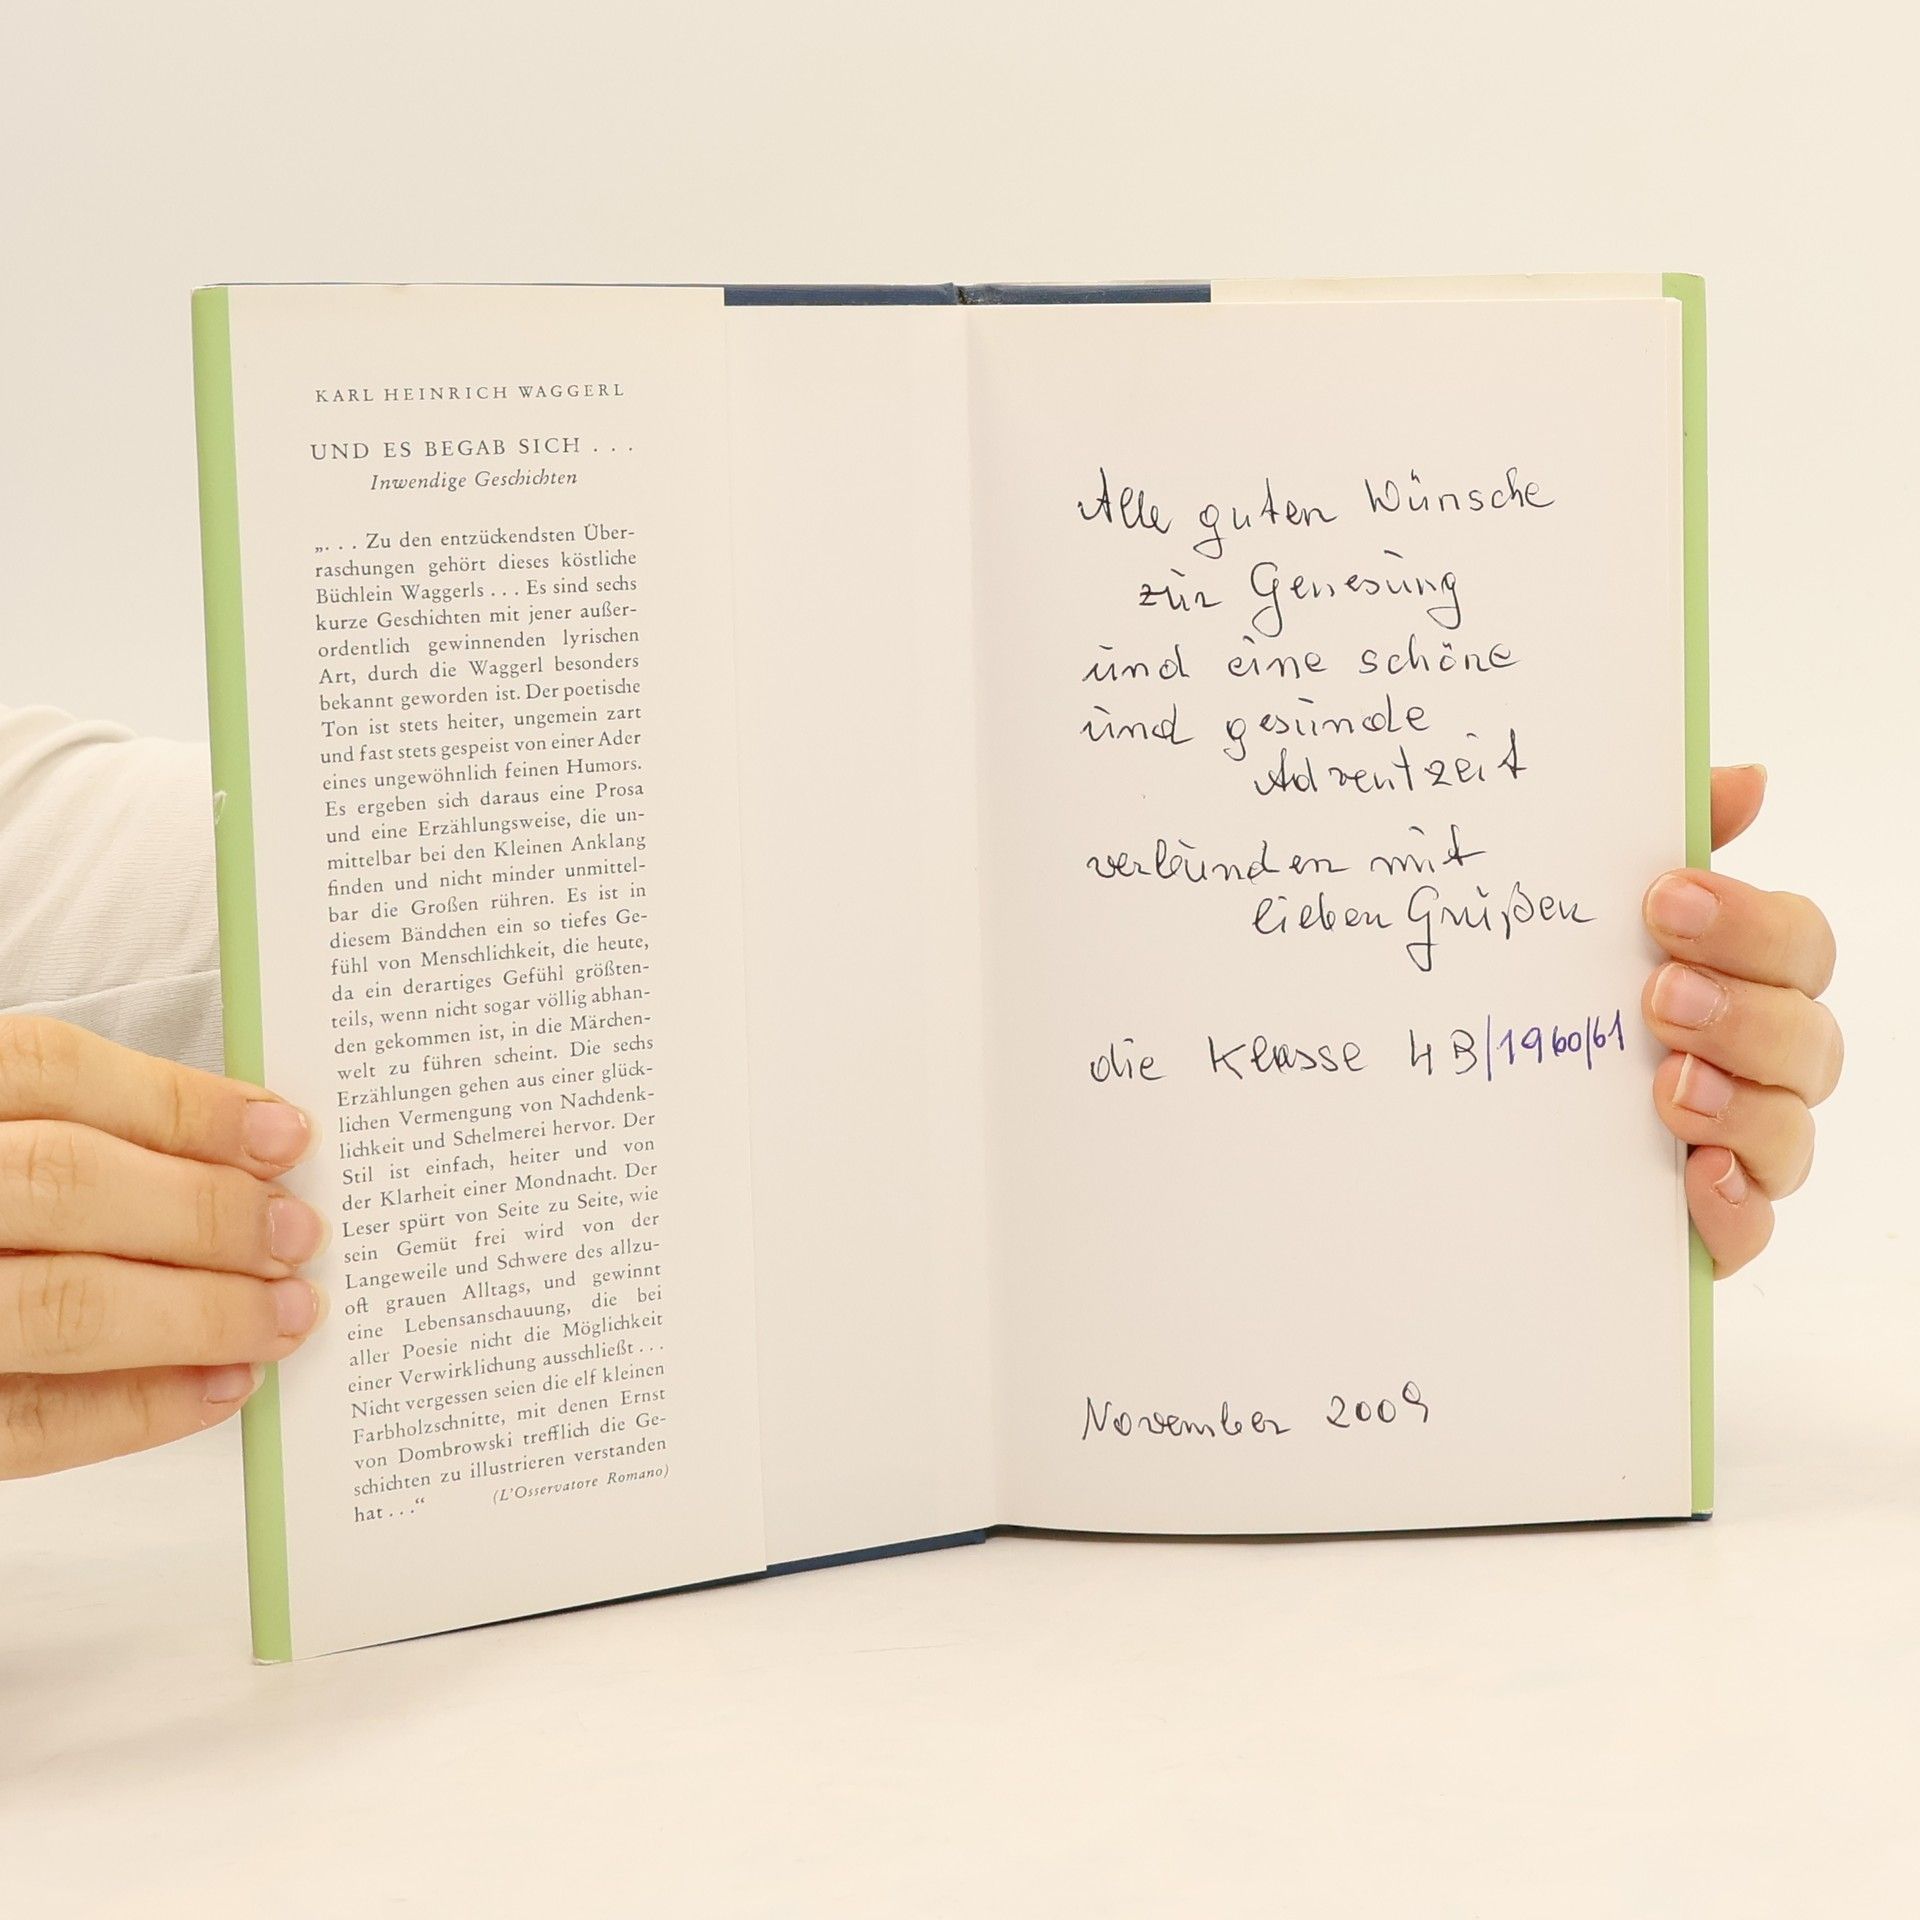 KARL HEINRICH WAGGERL
UND ES BEGAB SICH . . .
Inwendige Geschichten
„. . . Zu den entzückendsten Über-
raschungen gehört dieses köstliche
Büchlein Waggerls . . . Es sind sechs
kurze Geschichten mit jener außer-
ordentlich gewinnenden lyrischen
Art, durch die Waggerl besonders
bekannt geworden ist. Der poetische
Ton ist stets heiter, ungemein zart
und fast stets gespeist von einer Ader
eines ungewöhnlich feinen Humors.
Es ergeben sich daraus eine Prosa
und eine Erzählungsweise, die un-
mittelbar bei den Kleinen Anklang
finden und nicht minder unmittel-
bar die Großen rühren. Es ist in
diesem Bändchen ein so tiefes Ge-
fühl von Menschlichkeit, die heute,
da ein derartiges Gefühl größten-
teils, wenn nicht sogar völlig abhan-
den gekommen ist, in die Märchen-
welt zu führen scheint. Die sechs
Erzählungen gehen aus einer glück-
lichen Vermengung von Nachdenk-
lichkeit und Schelmerei hervor. Der
Stil ist einfach, heiter und von
der Klarheit einer Mondnacht. Der
Leser spürt von Seite zu Seite, wie
sein Gemüt frei wird von der
Langeweile und Schwere des allzu-
oft grauen Alltags, und gewinnt
eine Lebensanschauung, die bei
aller Poesie nicht die Möglichkeit
einer Verwirklichung ausschließt . . .
Nicht vergessen seien die elf kleinen
Farbholzschnitte, mit denen Ernst
von Dombrowski trefflich die Ge-
schichten zu illustrieren verstanden
hat . . .“ (L'Osservatore Romano)
Alle guten Wünsche
zur Genesung
und eine schöne
und gesunde
Adventzeit
verbunden mit
lieben Grüßen
die Klasse 4B/1960/61
November 2009